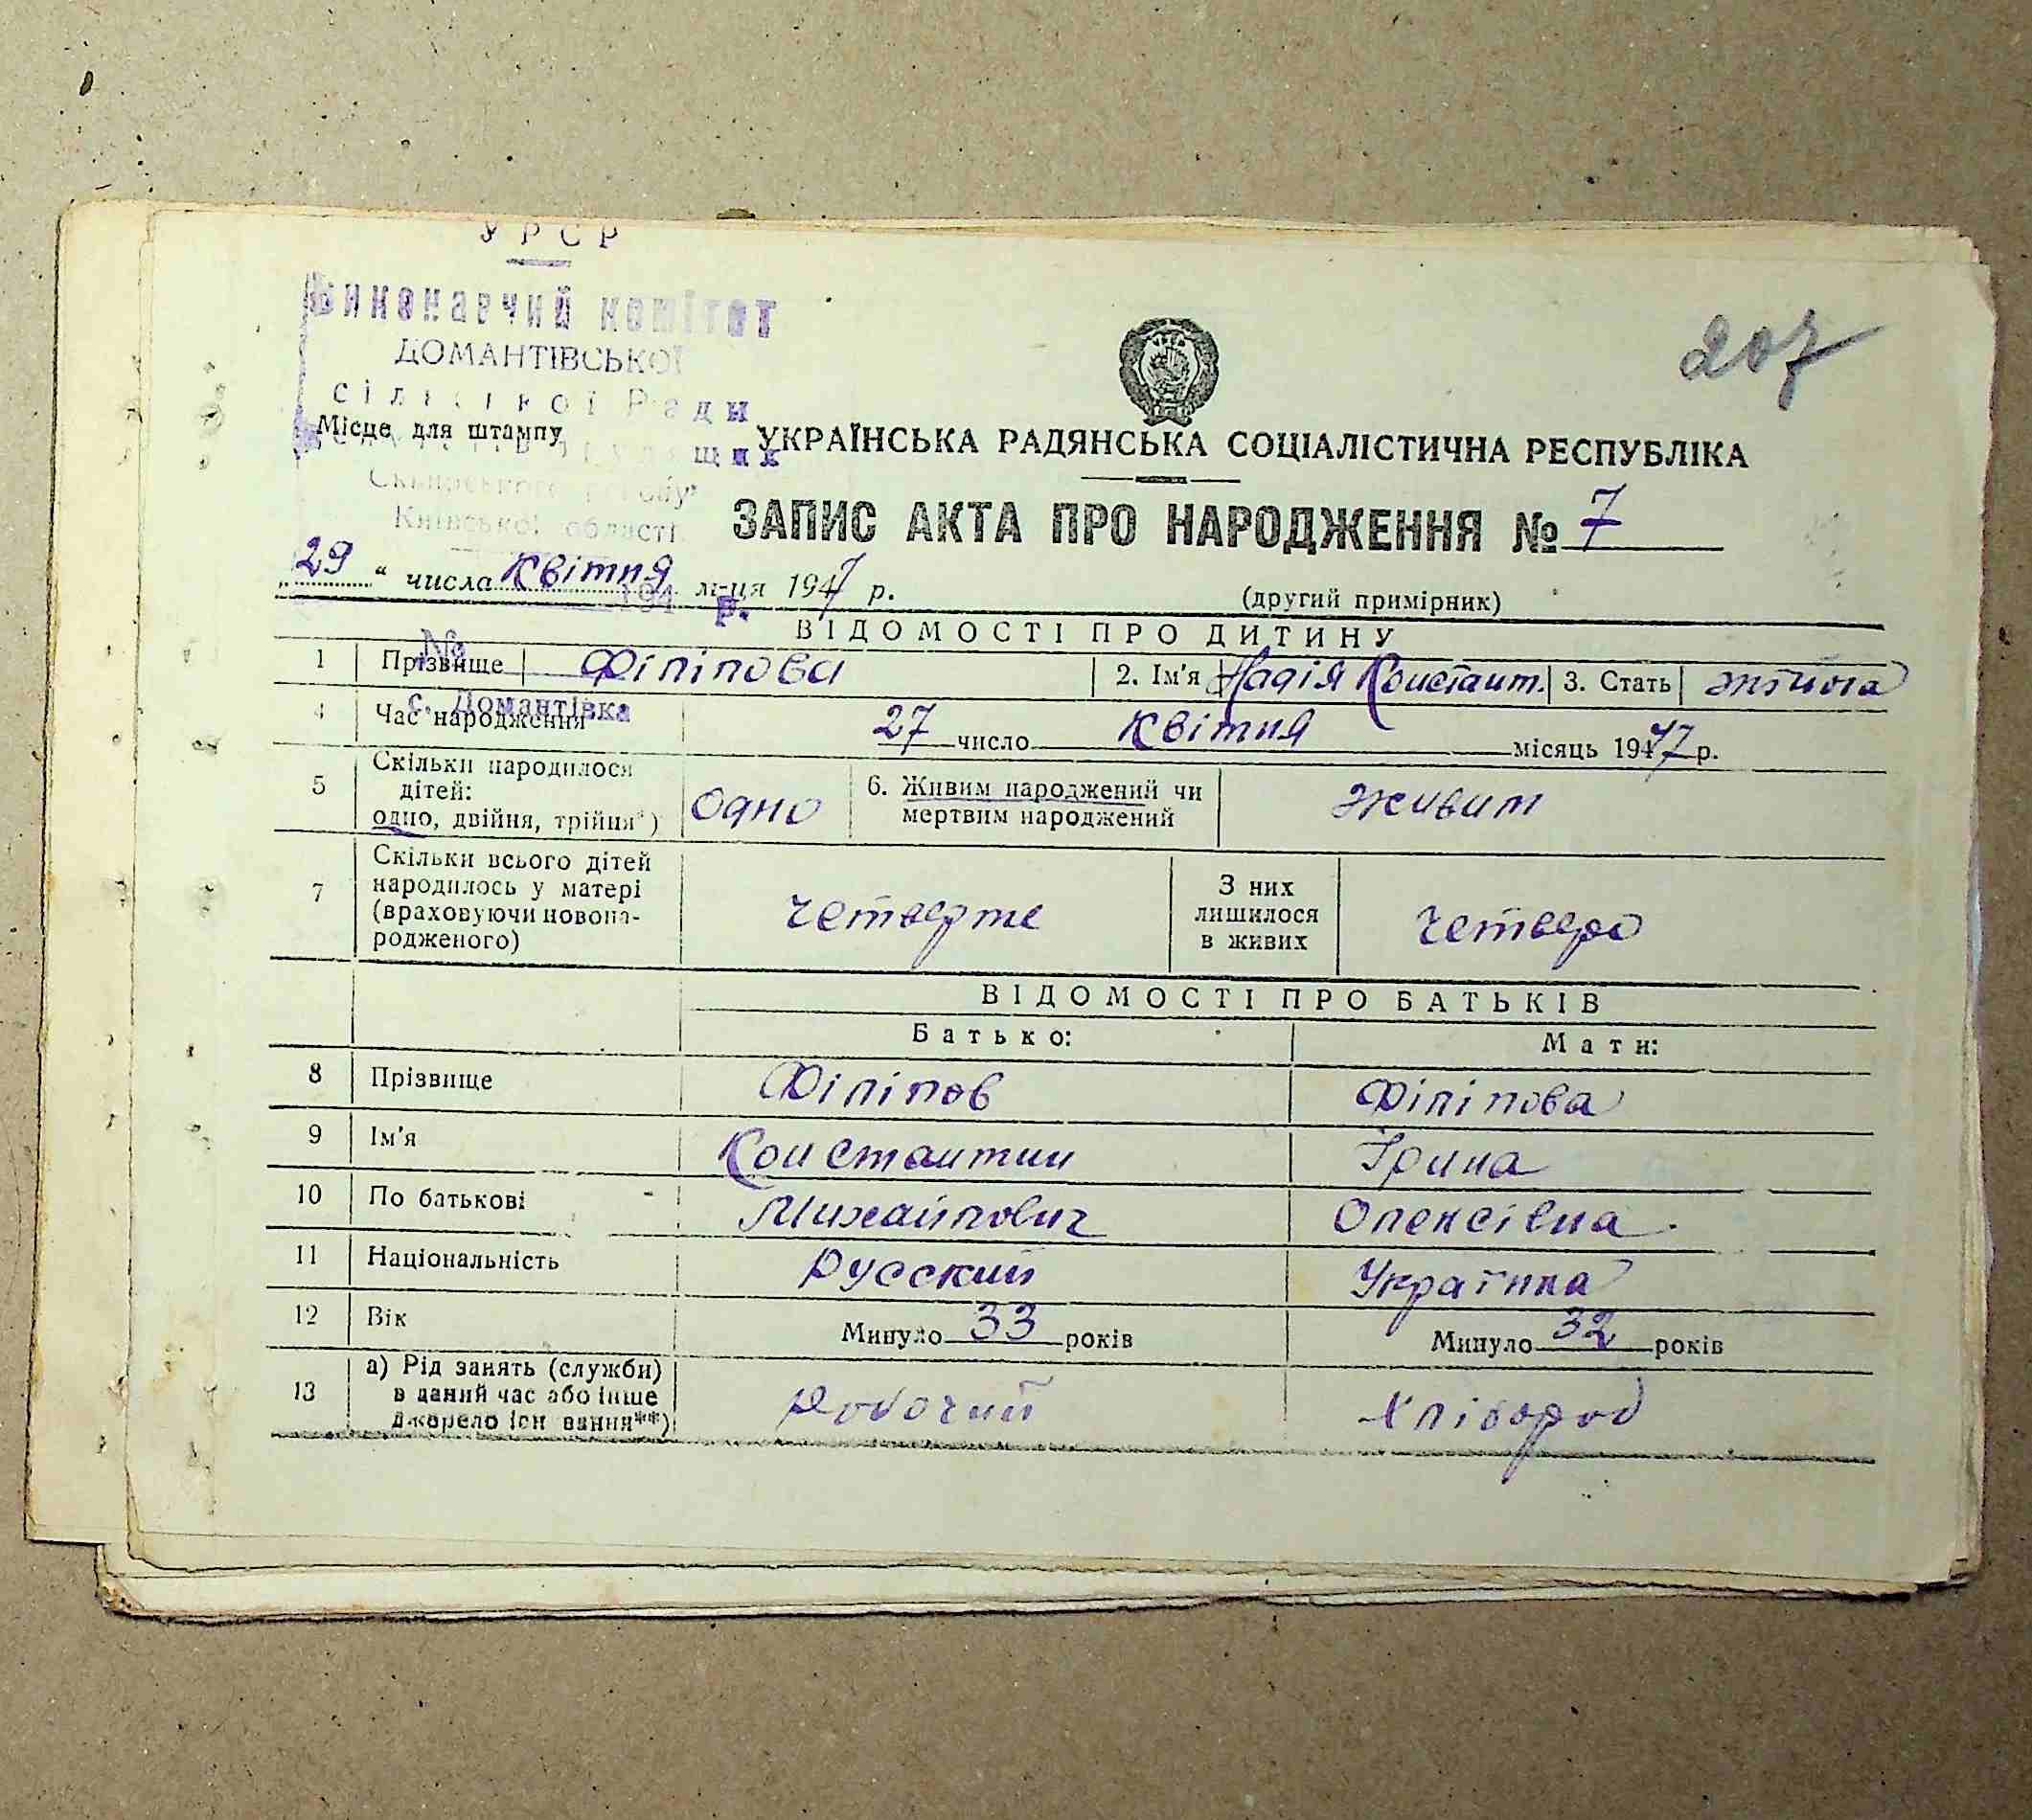 УРСР
Виконавчий комітет
ДОМАНТІВСЬКОЇ
сільської Ради
Місце для штампу
Сквирського району
Київської області
207
УКРАЇНСЬКА РАДЯНСЬКА СОЦІАЛІСТИЧНА РЕСПУБЛІКА
ЗАПИС АКТА ПРО НАРОДЖЕННЯ № 7
„29“ числа квітня м-ця 1947 р.
194 р.
(другий примірник)
ВІДОМОСТІ ПРО ДИТИНУ
№
1 Прізвище Філіпова 2. Ім'я Надія Констант. 3. Стать жіноча
с. Домантівка
4 Час народження 27 число квітня місяць 1947 р.
5 Скільки народилося дітей: одно, двійня, трійня*) одно 6. Живим народжений чи мертвим народжений живим
7 Скільки всього дітей народилось у матері (враховуючи новона-родженого) четверте З них лишилося в живих четверо
ВІДОМОСТІ ПРО БАТЬКІВ
Батько: Мати:
8 Прізвище Філіпов Філіпова
9 Ім'я Константин Ірина
10 По батькові Михайлович Олексієвна
11 Національність Русский Українка
12 Вік Минуло 33 років Минуло 32 років
13 а) Рід занять (служби) в даний час або інше джерело існування**) Робочий Хлібороб